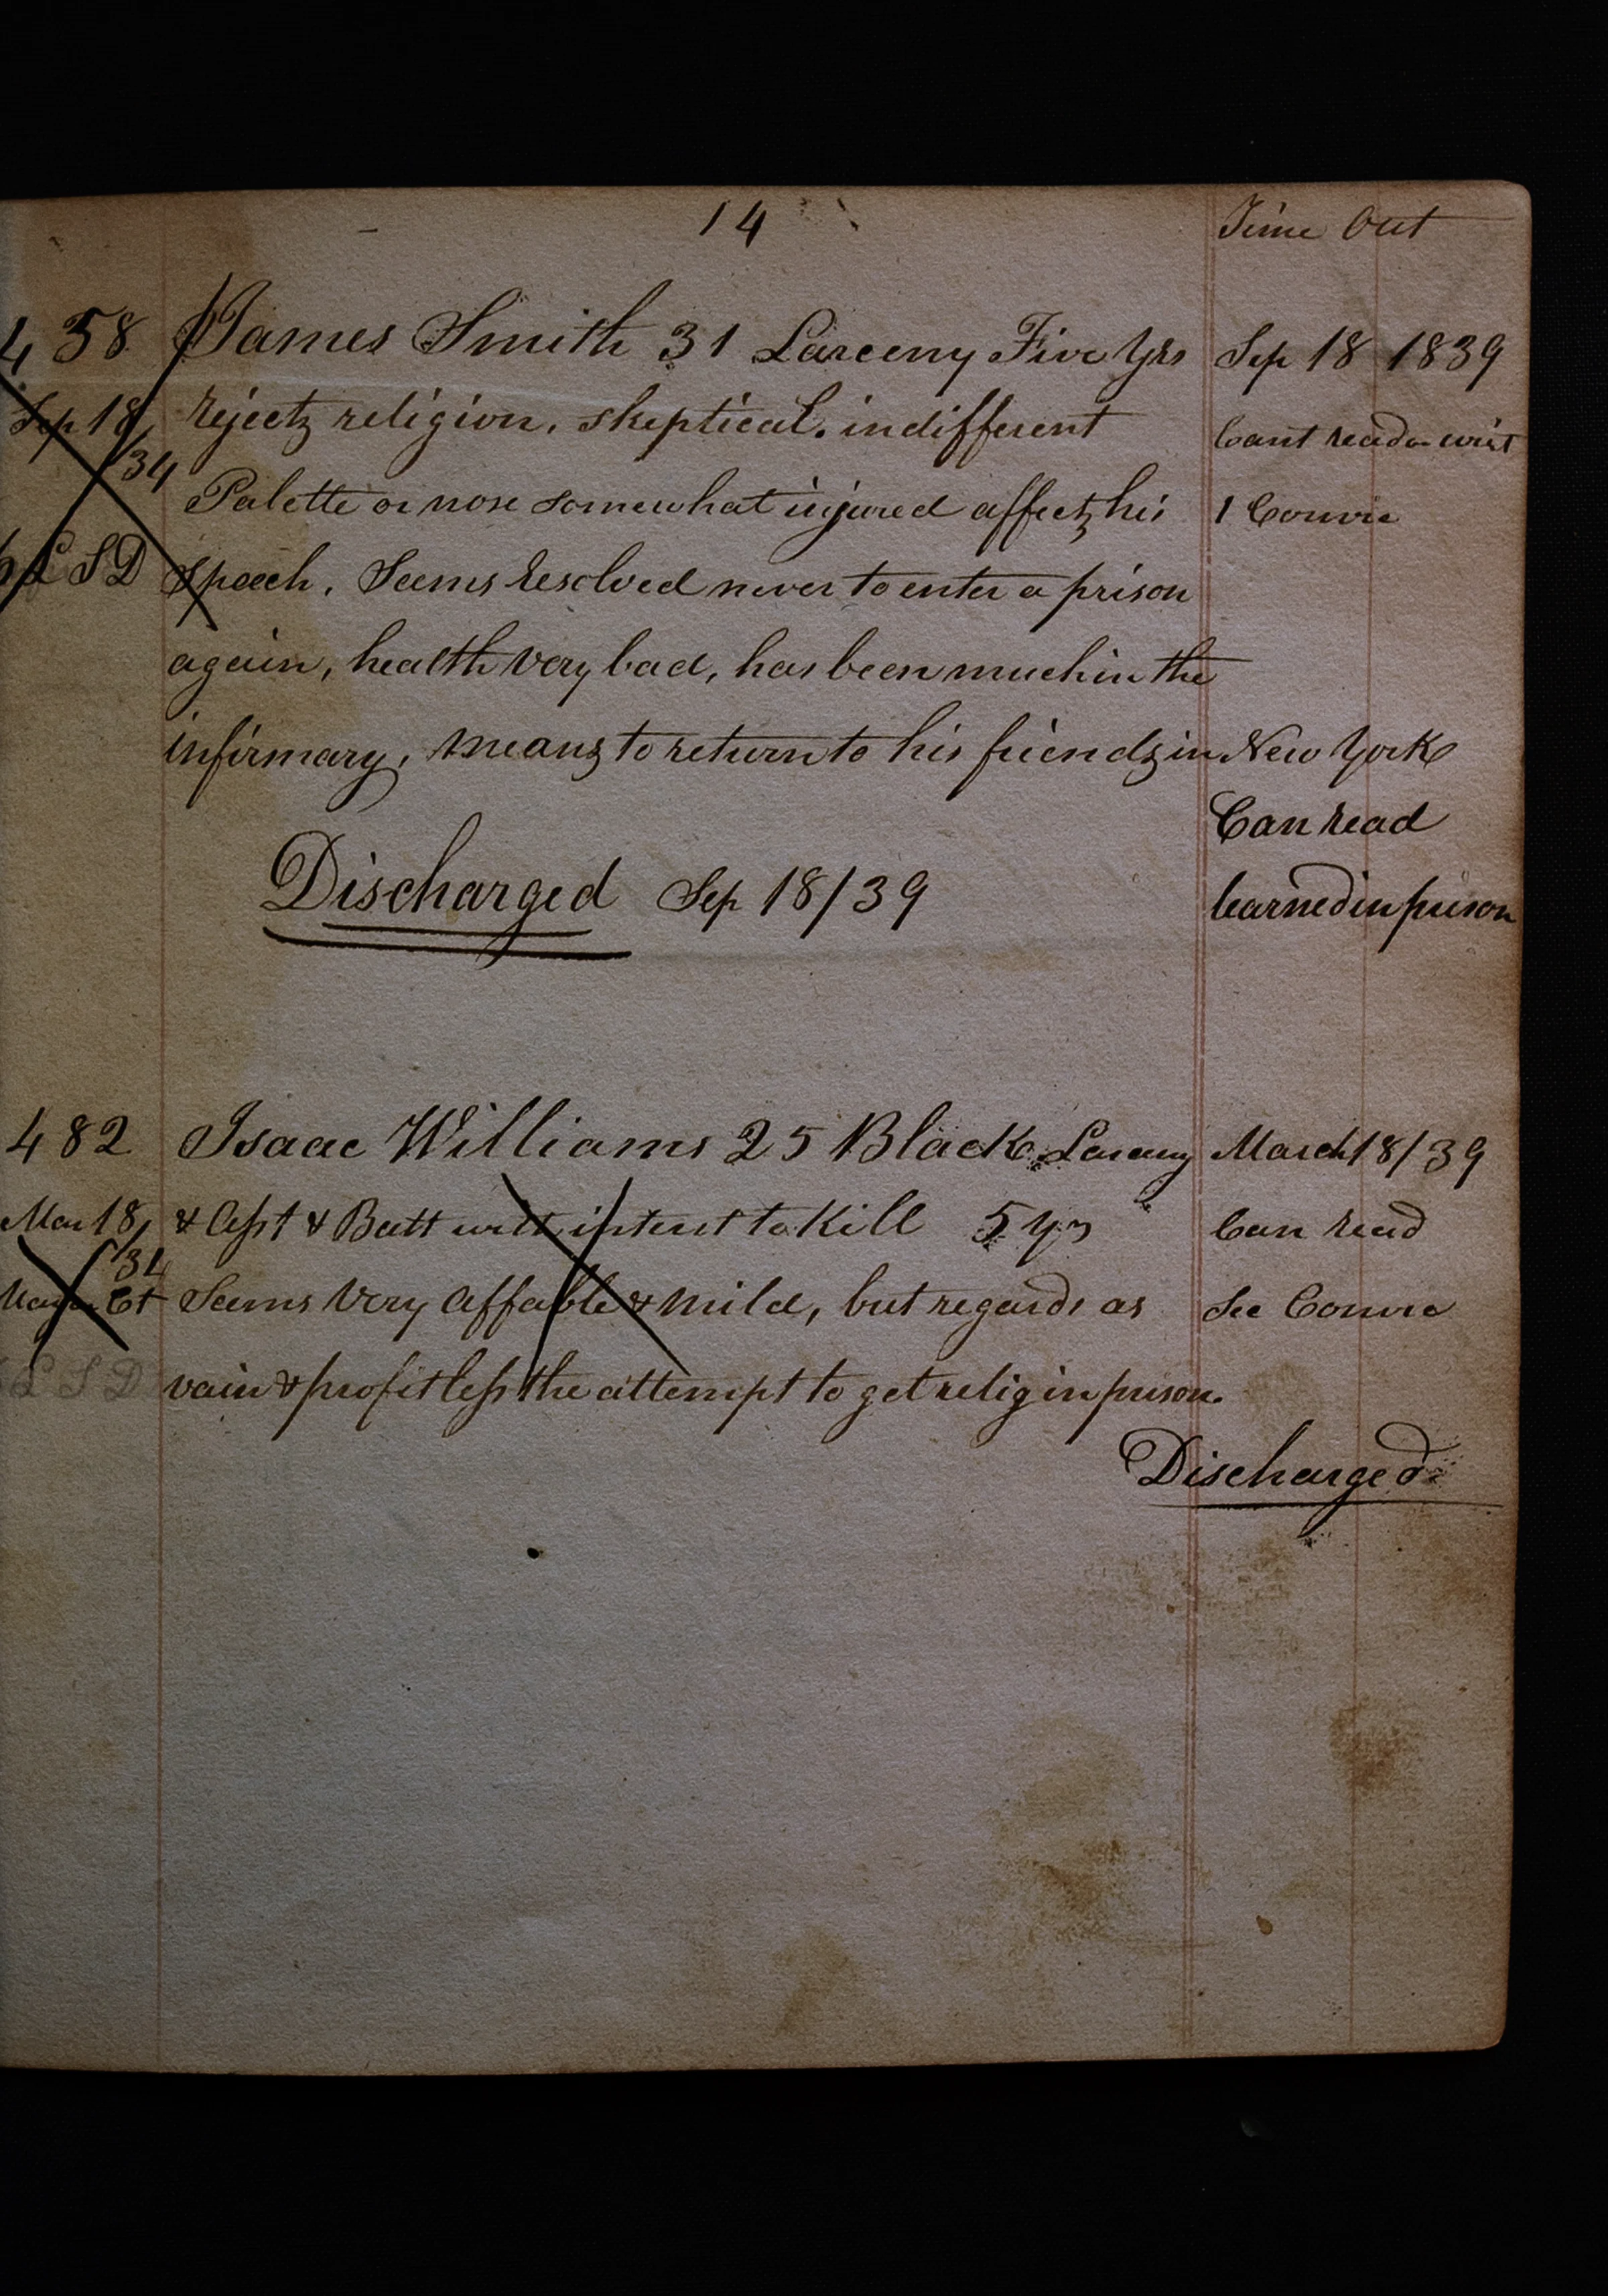 14 Time Out
4 58 James Smith 31 Larceny Five Yrs Sep 18 1839
Sep 18/34 rejects religion. skeptical. indifferent Cant read or writ
Palette or nose somewhat injured affects his 1 Convic
L S D speech. Seems resolved never to enter a prison
again, health very bad, has been much in the
infirmary, means to return to his friends in New York
Can read
Discharged Sep 18/39 learned in prison
482 Isaac Williams 25 Black Larceny March 18/39
Mar 18/34 & Asst & Batt with intent to Kill 5 yrs Can read
Ct Seems very affable & mild, but regards as Sec Convic
L S D vain & profitless the attempt to get relig in prison.
Discharged